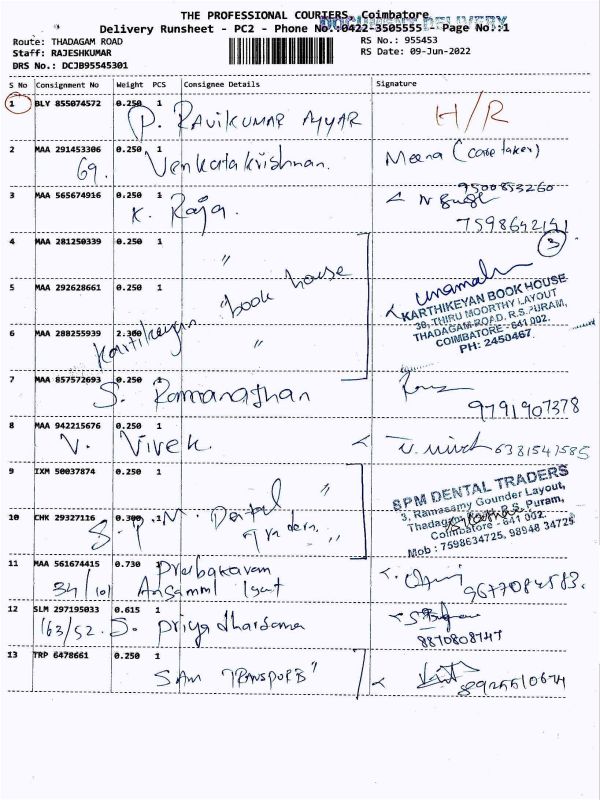 THE PROFESSIONAL COURIERS, Coimbatore
DOCUMENT DELIVERY
Delivery Runsheet - PC2 - Phone No.:0422-3505555 Page No:1
Route: THADAGAM ROAD
RS No.: 955453
Staff: RAJESHKUMAR
RS Date: 09-Jun-2022
DRS No.: DCJB95545301
S No Consignment No Weight PCS Consignee Details Signature
1 BLY 855074572 0.250 1
P. RAVIKUMAR AIYAR H/R
2 MAA 291453306 0.250 1
69. Venkatakrishnan. Meena (care taker)
9500853260
3 MAA 565674916 0.250 1
K. Raja.
7598642141
3
4 MAA 281250339 0.250 1
"
5 MAA 292628661 0.250 1
Kartikeyan book house
KARTHIKEYAN BOOK HOUSE
30, THIRU MOORTHY LAYOUT
THADAGAM ROAD, R.S.PURAM,
COIMBATORE - 641 002.
PH: 2450467
6 MAA 288255939 2.300 1
"
7 MAA 857572693 0.250 1
S. Ramanathan
9791907378
8 MAA 942215676 0.250 1
V. Vivek V. Vivek 6381547585
9 IXM 50037874 0.250 1
"
SPM DENTAL TRADERS
3, Ramasamy Gounder Layout,
Thadagam Road, R.S. Puram,
Coimbatore - 641 002.
Mob : 7598634725, 98948 34725
10 CHK 29327116 0.300 1
S.P.M. Dental Traders. "
11 MAA 561674415 0.730 1
Prabakaran
34/101
9677084583.
12 SLM 297195033 0.615 1
163/52. S. Priyadharsana
8870808747
13 TRP 6478661 0.250 1
SAM TRANSPORTS"
8925510674